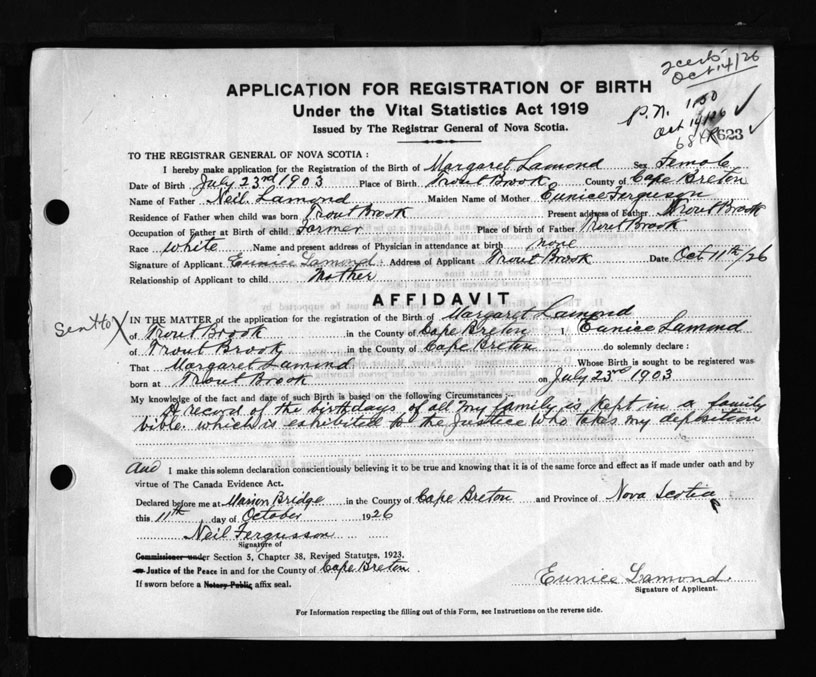 2 certs
Oct 14/26
APPLICATION FOR REGISTRATION OF BIRTH
Under the Vital Statistics Act 1919
Issued by The Registrar General of Nova Scotia.
P.N. 1.50
Oct 14/26 ✓
623 ✓
TO THE REGISTRAR GENERAL OF NOVA SCOTIA :
I hereby make application for the Registration of the Birth of Margaret Lamond Sex Female
Date of Birth July 23rd 1903 Place of Birth Trout Brook County of Cape Breton
Name of Father Neil Lamond Maiden Name of Mother Eunice Ferguson
Residence of Father when child was born Trout Brook Present address of Father Trout Brook
Occupation of Father at Birth of child Farmer Place of birth of Father Trout Brook
Race white Name and present address of Physician in attendance at birth none
Signature of Applicant Eunice Lamond Address of Applicant Trout Brook Date Oct 11th/26
Relationship of Applicant to child Mother
AFFIDAVIT
Sent to X
IN THE MATTER of the application for the registration of the Birth of Margaret Lamond
of Trout Brook in the County of Cape Breton I, Eunice Lamond
of Trout Brook in the County of Cape Breton do solemnly declare :
That Margaret Lamond Whose Birth is sought to be registered was
born at Trout Brook on July 23rd 1903
My knowledge of the fact and date of such Birth is based on the following Circumstances :-
A record of the birthdays of all my family is kept in a family
bible. which is exhibited to the Justice who takes my deposition
And I make this solemn declaration conscientiously believing it to be true and knowing that it is of the same force and effect as if made under oath and by
virtue of The Canada Evidence Act.
Declared before me at Marion Bridge in the County of Cape Breton and Province of Nova Scotia
this 11th day of October 1926
Neil Fergusson
Signature of
Commissioner under Section 5, Chapter 38, Revised Statutes, 1923.
or Justice of the Peace in and for the County of Cape Breton
If sworn before a Notary Public affix seal.
Eunice Lamond.
Signature of Applicant.
For Information respecting the filling out of this Form, see Instructions on the reverse side.